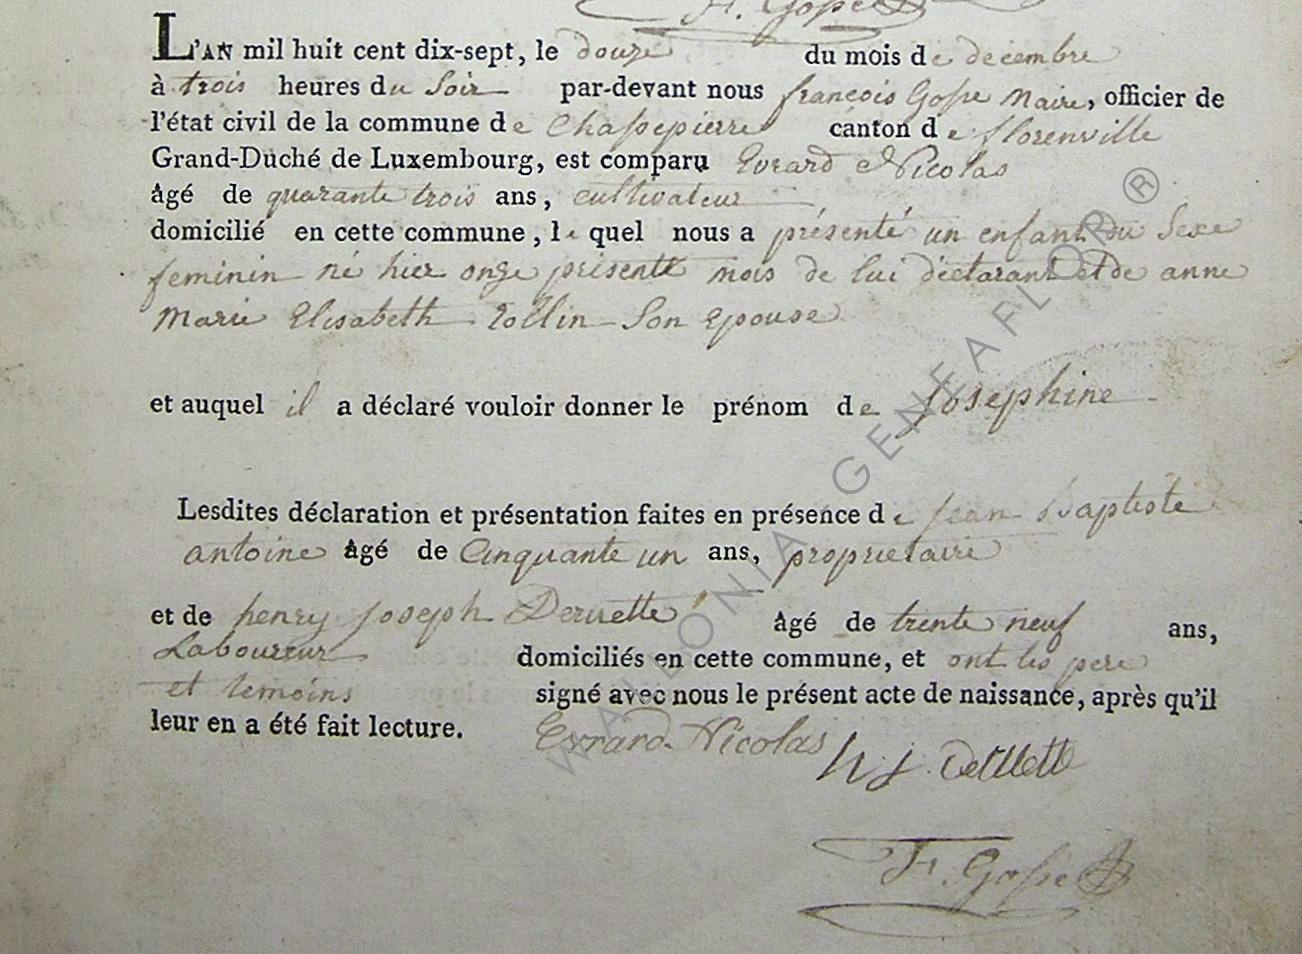 F. Gosse
L'AN mil huit cent dix-sept, le douze du mois de decembre
à trois heures du Soir par-devant nous françois Gosse Maire, officier de
l'état civil de la commune de Chassepierre canton de florenville
Grand-Duché de Luxembourg, est comparu Evrard Nicolas
âgé de quarante trois ans, cultivateur
domicilié en cette commune, le quel nous a présenté un enfant du Sexe
feminin né hier onze présent mois de lui déclarant et de anne
Marie Elisabeth Collin Son epouse
et auquel il a déclaré vouloir donner le prénom de Josephine
Lesdites déclaration et présentation faites en présence de jean Baptiste
antoine âgé de Cinquante un ans, proprietaire
et de henry joseph Deruette âgé de trente neuf ans,
Laboureur domiciliés en cette commune, et ont les pere
et temoins signé avec nous le présent acte de naissance, après qu'il
leur en a été fait lecture.
Evrard Nicolas h j
F. Gosse
WALLONIA GENEAFLOR ®